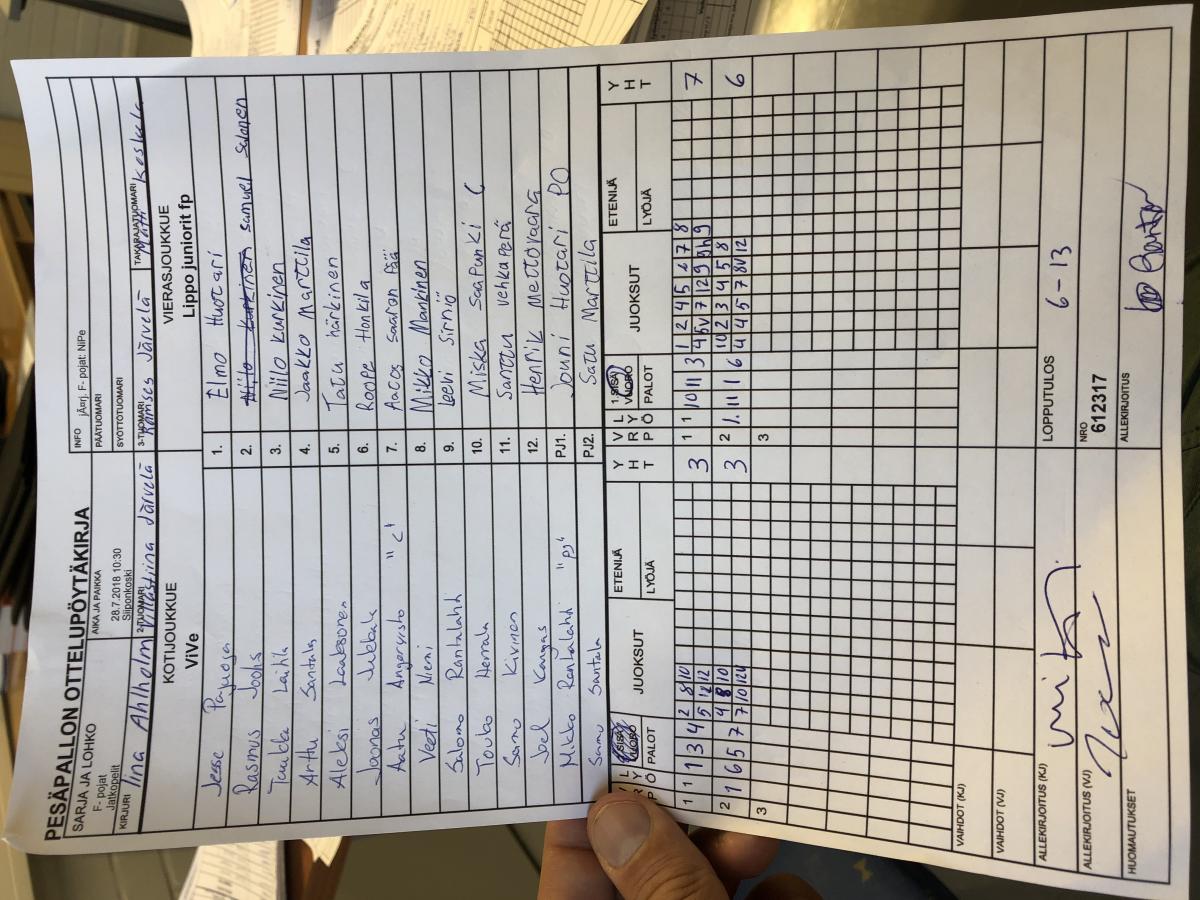 PESÄPALLON OTTELUPÖYTÄKIRJA
SARJA JA LOHKO
F- pojat
Jatkopelit
AIKA JA PAIKKA
28.7.2018 10:30
Siiponkoski
INFO jÃ¤rj. F- pojat: NiPe
PÄÄTUOMARI
SYÖTTÖTUOMARI
KIRJURI Iina Ahlholm
2-TUOMARI Järvelä
3-TUOMARI Ramses Järvelä
TAKARAJATUOMARI Koskela
KOTIJOUKKUE
ViVe
VIERASJOUKKUE
Lippo juniorit fp
Jesse 1. Elmo Huotari
Rasmus 2. Niilo Kurkinen Samuel Salonen
Tuukka Laitila 3. Niilo Kurkinen
Arttu Santala 4. Jaakko Marttila
Aleksi Laaksonen 5. Tatu härkinen
Joonas Jukkala 6. Roope Honkila
Aatu Angervisto "C" 7. Aatos Saaran pää
Veeti Niemi 8. Mikko Manninen
Salomo Rantalahti 9. Leevi Sirniö
Touko Herrala 10. Miska Saapunki C
Samu Kivinen 11. Santtu Vehkaperä
Joel Kangas 12. Henrik Mettovaara
Mikko Rantalahti "PJ" PJ1. Jouni Huotari PO
Samu Santala PJ2. Satu Marttila
V P L Y R Ö 1.SISÄ VUORO PALOT JUOKSUT ETENIJÄ LYÖJÄ Y H T
1 1 1 3 4 2 8 10 3
5 12 12
2 1 6 5 7 4 8 10 3
7 10 12V
3
V P L Y R Ö 1.SISÄ VUORO PALOT JUOKSUT ETENIJÄ LYÖJÄ Y H T
1 1 10 11 3 1 2 4 5 6 7 8 7
4 5V 7 12 9 9h 9
2 1. 11 1 6 10 2 3 4 5 8 6
4 4 5 7 8V 12
3
VAIHDOT (KJ)
VAIHDOT (VJ)
ALLEKIRJOITUS (KJ)
LOPPUTULOS 6-13
ALLEKIRJOITUS (VJ)
NRO
612317
HUOMAUTUKSET
ALLEKIRJOITUS